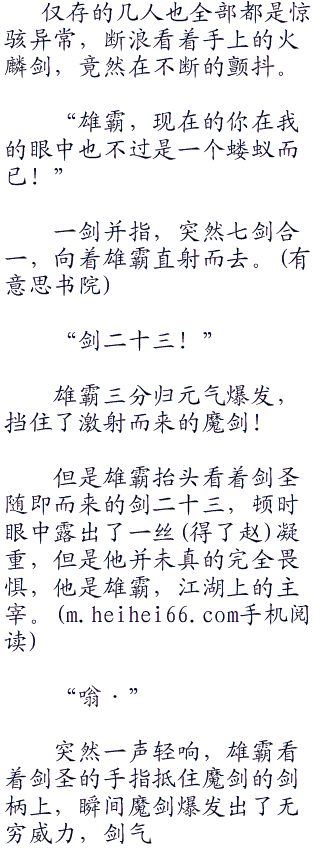 仅存的几人也全部都是惊
骇异常，断浪看着手上的火
麟剑，竟然在不断的颤抖。
“雄霸，现在的你在我
的眼中也不过是一个蝼蚁而
已！”
一剑并指，突然七剑合
一，向着雄霸直射而去。(有
意思书院)
“剑二十三！”
雄霸三分归元气爆发，
挡住了激射而来的魔剑！
但是雄霸抬头看着剑圣
随即而来的剑二十三，顿时
眼中露出了一丝(得了赵)凝
重，但是他并未真的完全畏
惧，他是雄霸，江湖上的主
宰。(m.heihei66.com手机阅
读)
“嗡·”
突然一声轻响，雄霸看
着剑圣的手指抵住魔剑的剑
柄上，瞬间魔剑爆发出了无
穷威力，剑气